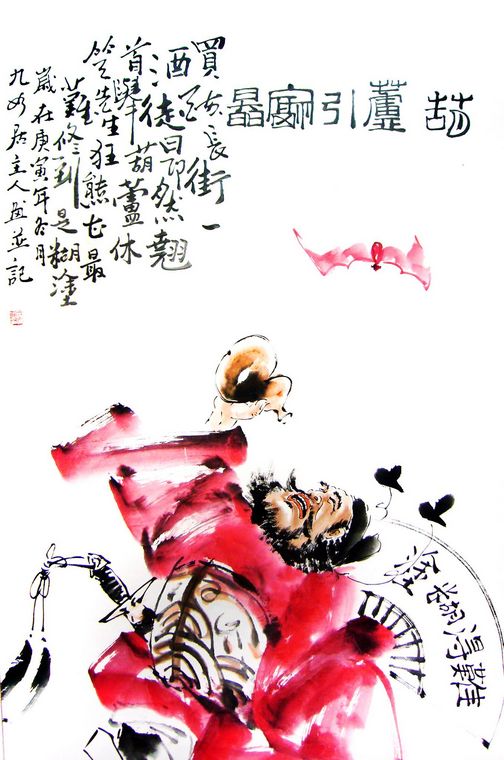 葫蘆引
買醉長街一
酒徒昂然翹
首舉葫蘆休
笑先生狂態最
難修到是糊塗
歲在庚寅年冬月
九如居主人畫並記
難得糊塗